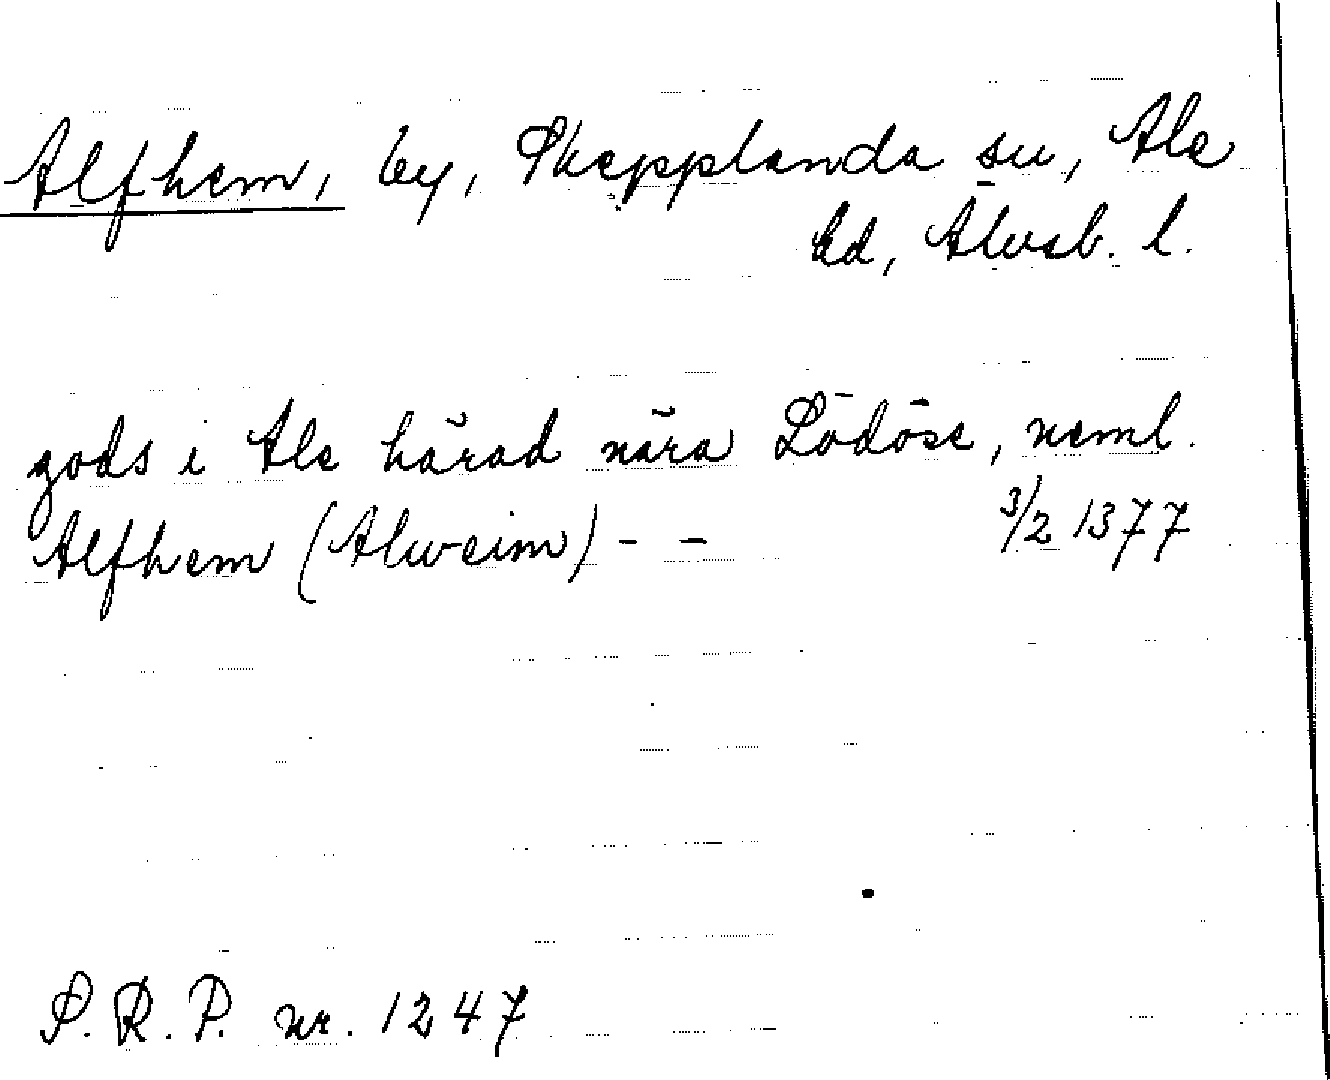 Alfhem, by, Skepplanda sn, Ale
hd, Älvsb. l.
gods i Ale härad nära Lödöse, neml.
Alfhem (Alweim) - - 3/2 1377
S.R.P. nr. 1247